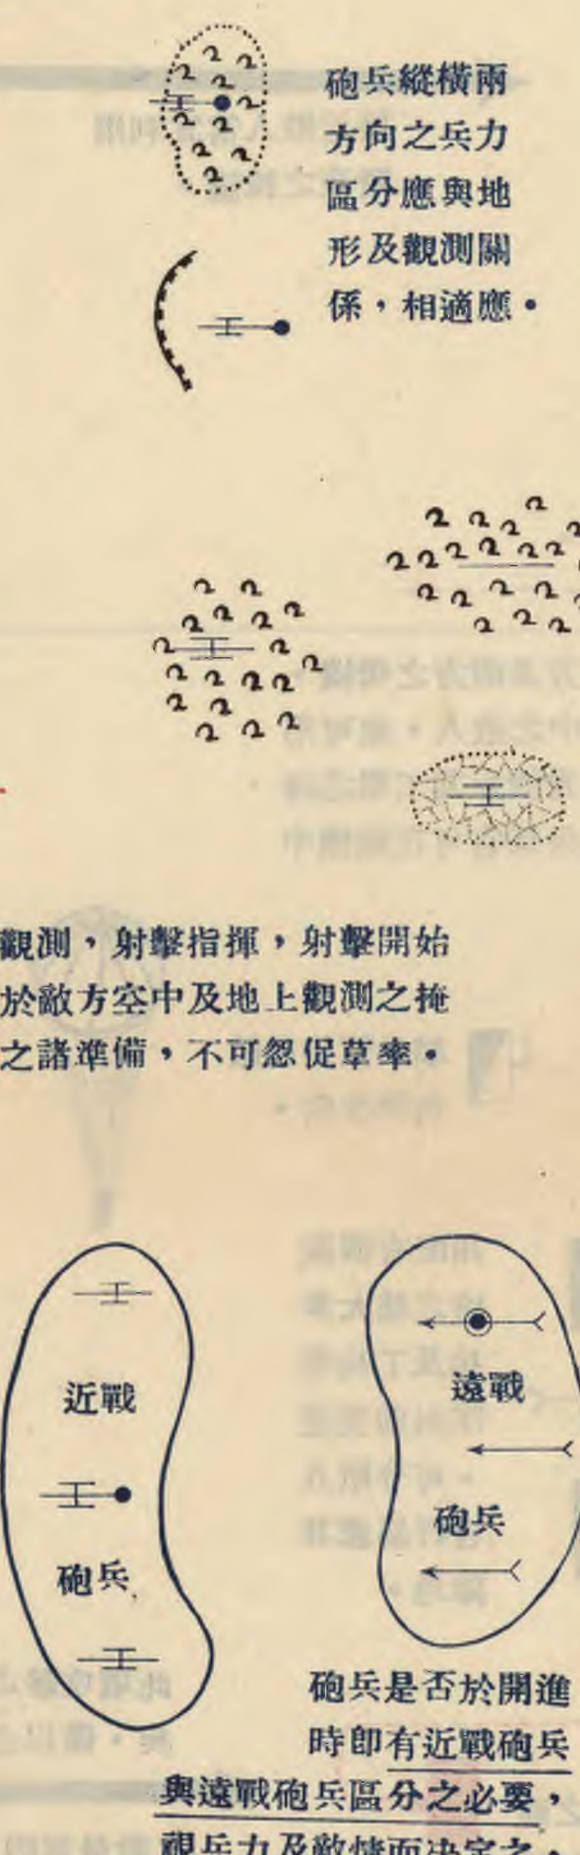 砲兵縱橫兩
方向之兵力
區分應與地
形及觀測關
係，相適應。
觀測，射擊指揮，射擊開始
於敵方空中及地上觀測之掩
之諸準備，不可怱促草率。
近戰
砲兵
遠戰
砲兵
砲兵是否於開進
時卽有近戰砲兵
與遠戰砲兵區分之必要，
視兵力及敵情而决定之。